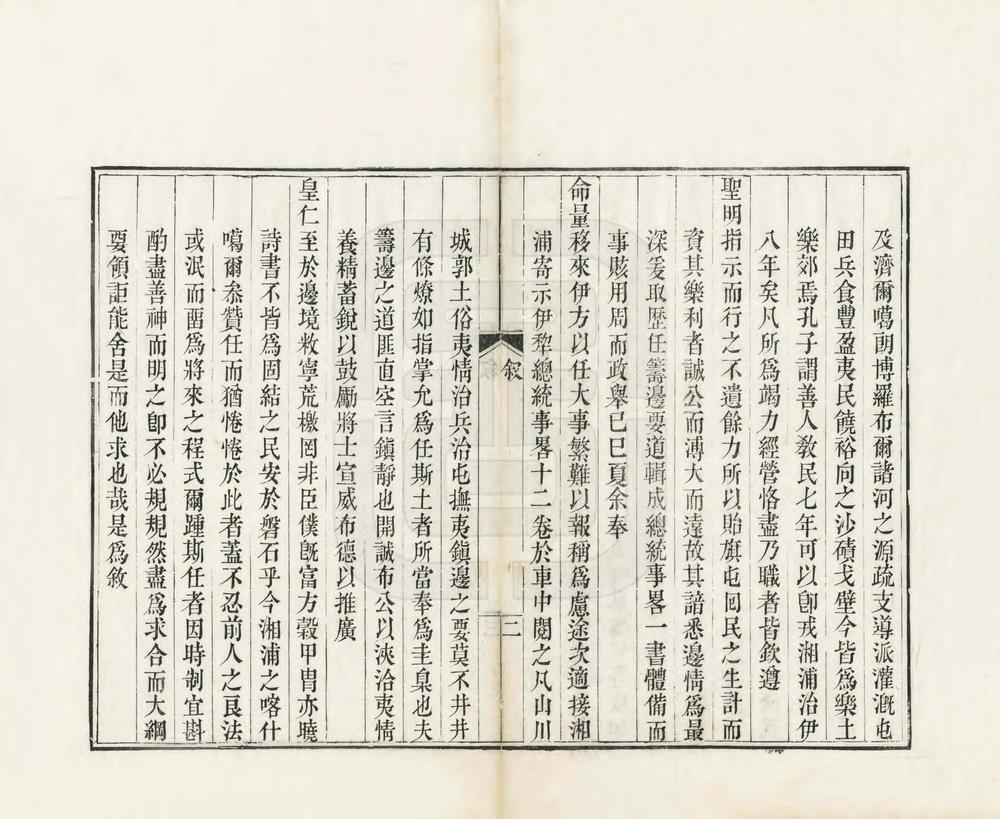 及濟爾噶朗博羅布爾諸河之源疏支導派灌漑屯
田兵食豐盈夷民饒裕向之沙磧戈壁今皆爲樂土
樂郊焉孔子謂善人敎民七年可以卽戎湘浦治伊
八年矣凡所爲竭力經營恪盡乃職者皆欽遵
聖明指示而行之不遺餘力所以貽旗屯回民之生計而
資其樂利者誠公而溥大而遠故其諳悉邊情爲最
深爰取歷任籌邊要道輯成總統事畧一書體備而
事賅用周而政舉已巳夏余奉
命量移來伊方以任大事繁難以報稱爲慮途次適接湘
浦寄示伊犂總統事畧十二卷於車中閱之凡山川
叙
二
城郭土俗夷情治兵治屯撫夷鎭邊之要莫不井井
有條燎如指掌允爲任斯土者所當奉爲圭臬也夫
籌邊之道匪直空言鎭靜也開誠布公以浹洽夷情
養精蓄銳以鼓勵將士宣威布德以推廣
皇仁至於邊境敉寧荒檄罔非臣僕旣富方穀甲冑亦曉
詩書不皆爲固結之民安於磐石乎今湘浦之喀什
噶爾叅贊任而猶惓惓於此者蓋不忍前人之良法
或泯而畱爲將來之程式爾踵斯任者因時制宜斟
酌盡善神而明之卽不必規規然盡爲求合而大綱
要領詎能舍是而他求也哉是爲敘